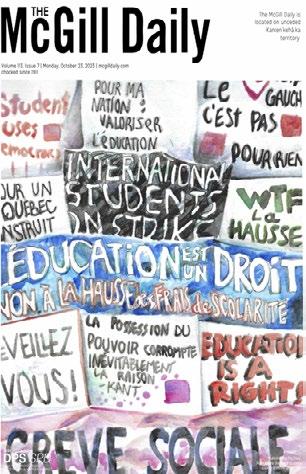 THE
McGill Daily
The McGill Daily is
located on unceded
Kanien'kehá:ka
territory
Volume 113, Issue 7 | Monday, October 23, 2023 | mcgilldaily.com
Student
uses
emocracy
POUR MA
NATION :
VALORISER
L'EDUCATION
Le
GAUCH
C'EST PAS
POUR RIEN
INTERNATIONAL
STUDENTS
ON STRIKE
OUR UN
QUEBEC
NSTRUIT
WTF
La
HAUSSE
ÉDUCATION EST UN DROIT
NON À LA HAUSSE des FRAIS de SCOLARITÉ
EVEILLEZ
VOUS!
LA POSSESSION DU
POUVOIR CORROMPTE
INÉVITABLEMENT
RAISON
-KANT-
EDUCATION
IS A
RIGHT!
GREVE SOCIALE
DPS